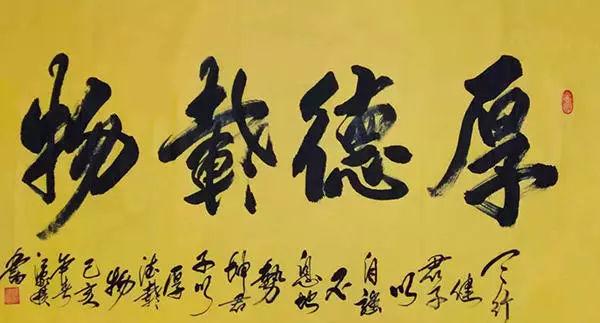 厚德載物
天行健君子以自強不息地勢坤君子以厚德載物己亥